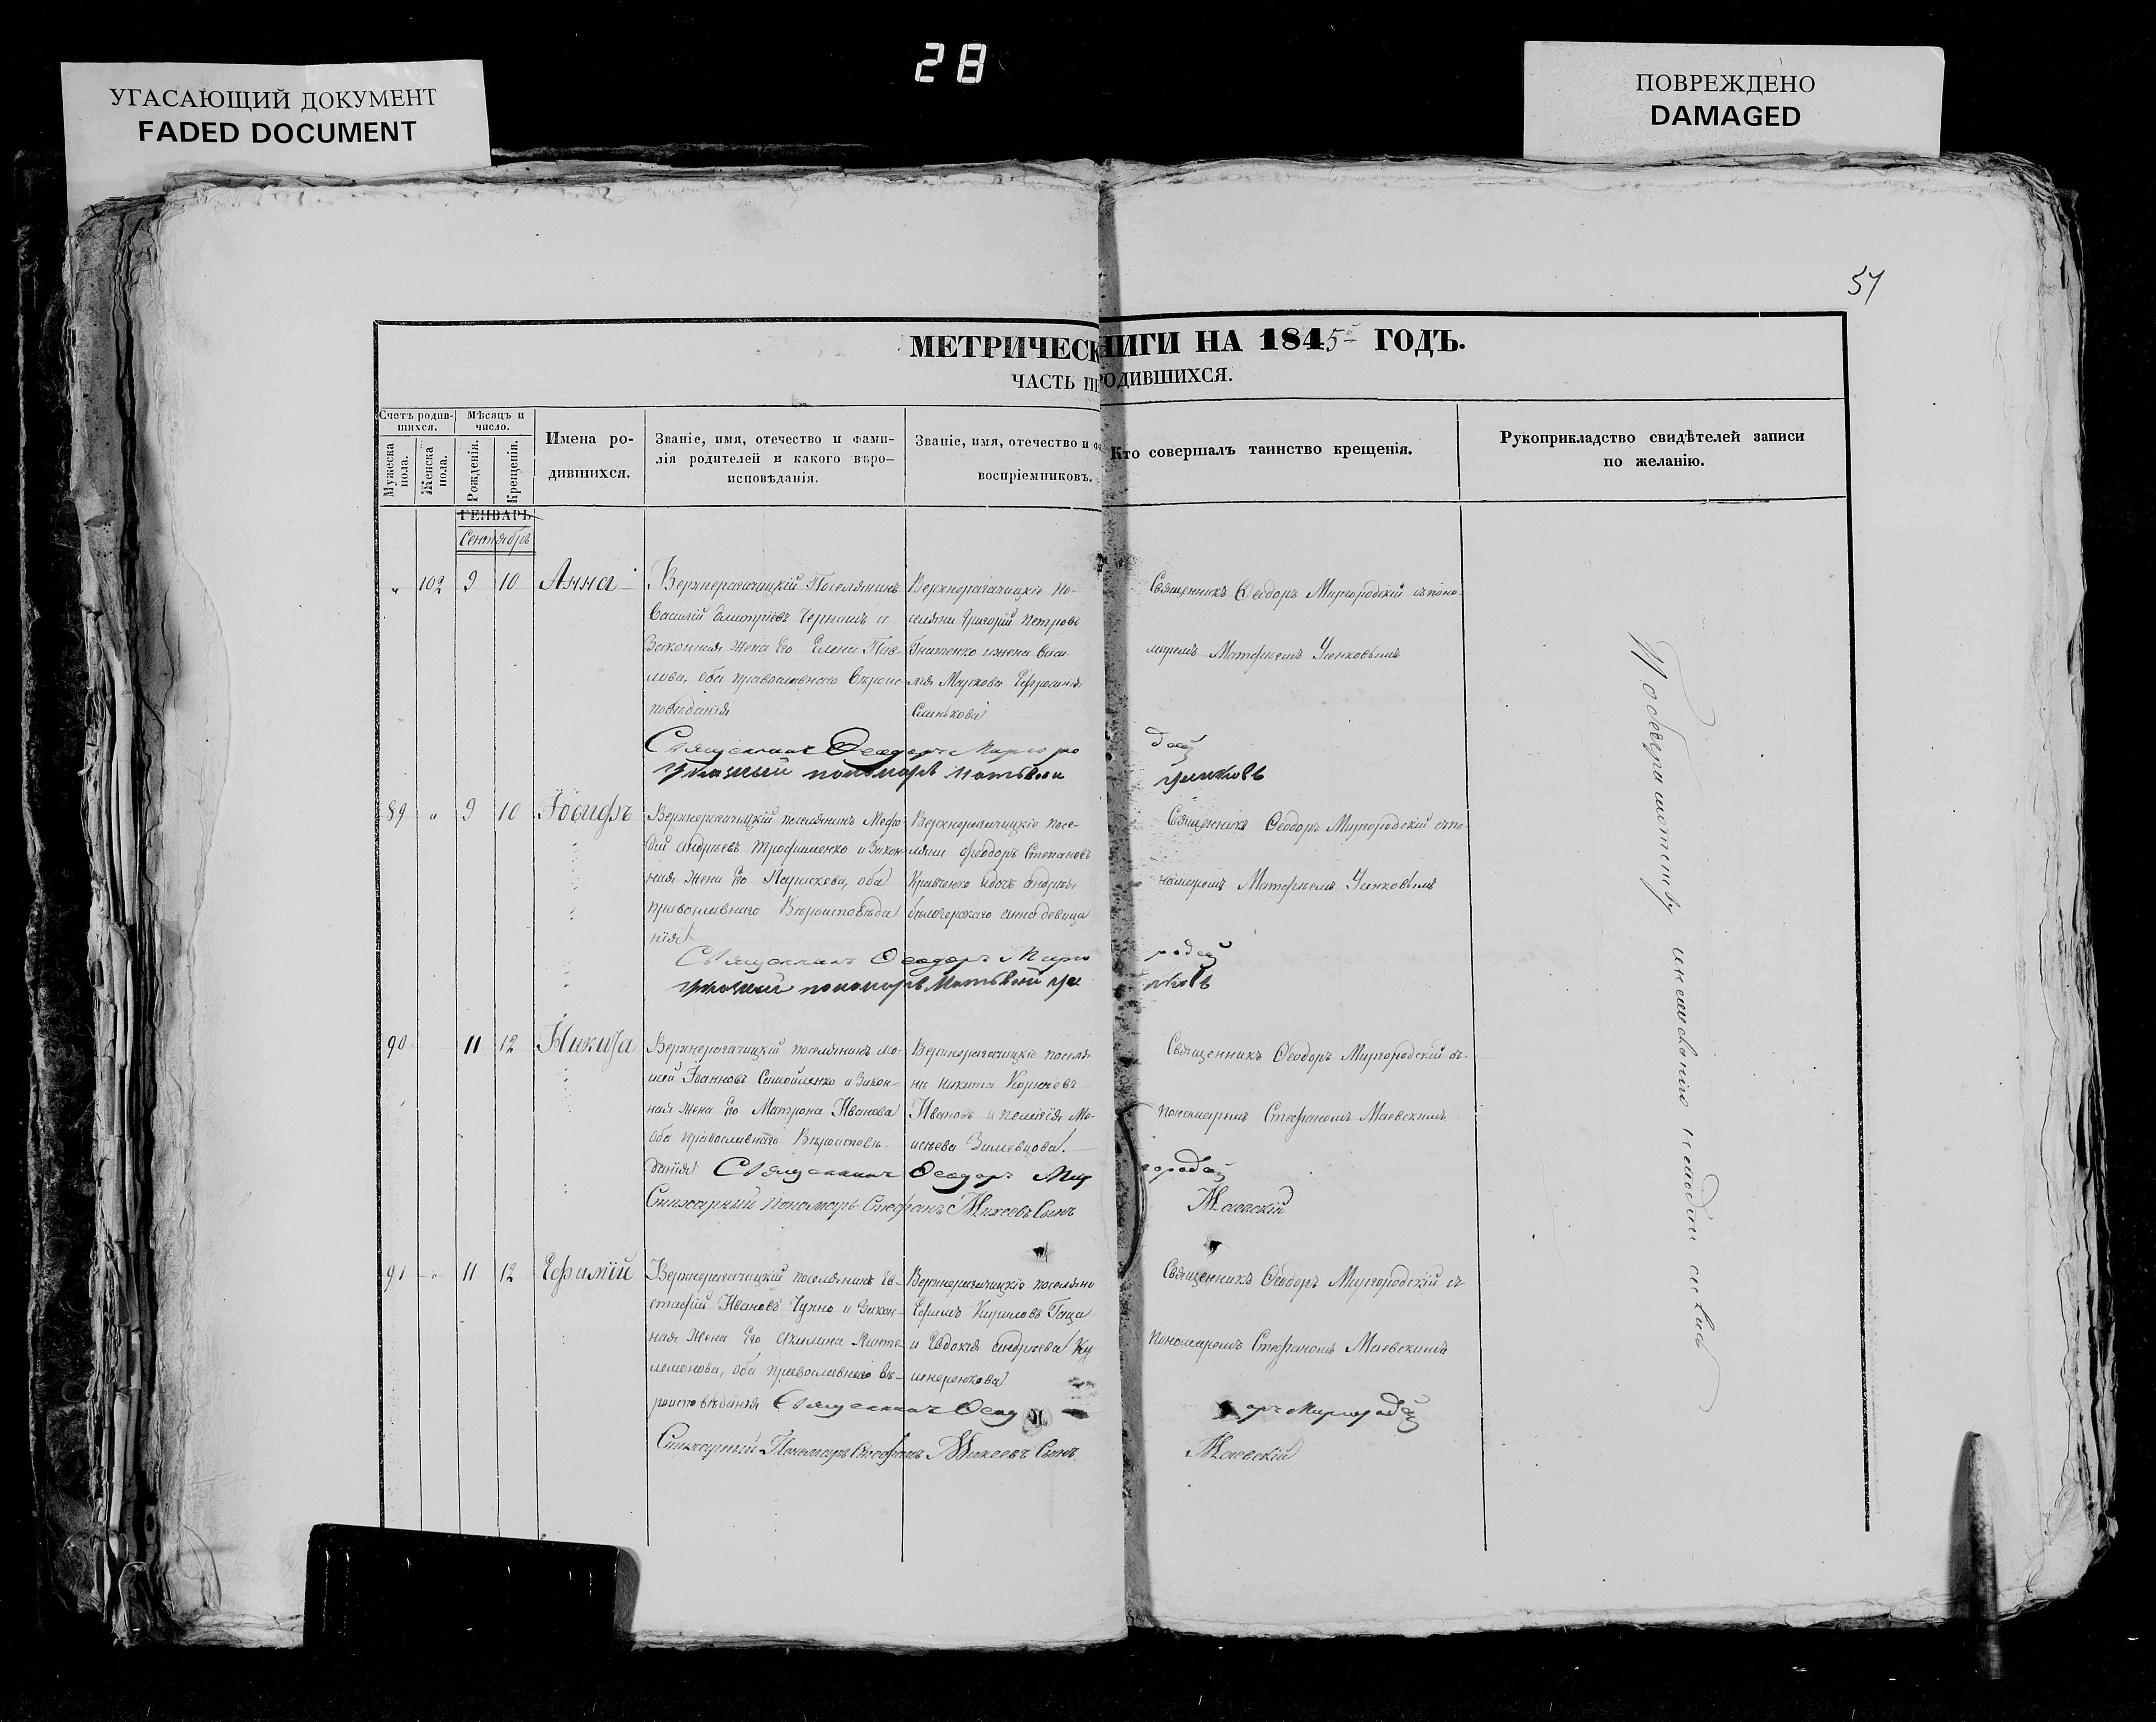 28
УГАСАЮЩИЙ ДОКУМЕНТ
FADED DOCUMENT
ПОВРЕЖДЕНО
DAMAGED
57
МЕТРИЧЕСК НИГИ НА 1845й ГОДЪ.
ЧАСТЬ ПЕ РОДИВШИХСЯ.
Счетъ родив-
шихся.
Мужеска
пола.
Женска
пола.
Мѣсяцъ и
число.
Рожденія.
Крещенія.
Имена ро-
дившихся.
Званіе, имя, отечество и фами-
лія родителей и какого вѣро-
исповѣданія.
Званіе, имя, отечество и
воспріемниковъ.
Кто совершалъ таинство крещенія.
Рукоприкладство свидѣтелей записи
по желанію.
ГЕНВАРЬ
Сентябрь
" 102 9 10 Анна
Верхнерогачицкій Поселянинъ
Василій Дмитріевъ и
Законная жена Его Елена Пав-
лова, оба православнаго Вѣроис-
повѣданія
Верхнерогачицкіе По-
селяни Григорій Петровъ
Игнатенко и жена Васи-
лія Маркова Ефросинія
Священникъ Ѳеодоръ Миргородскій съ поно-
маремъ Матфеемъ Усенковымъ
Священникъ Ѳеодоръ Миргородскій
пономарь Матвей Усенковъ
89 " 9 10 Іосифъ
Верхнерогачицкій поселянинъ Мефо-
дій Андреевъ Трофименко и Закон-
ная жена Его Параскева, оба
православнаго Вѣроисповѣда
нія
Верхнерогачицкіе посе-
ляни Феодоръ Степановъ
Кравченко и дочь Андрея
Бѣлозерскаго Анна девица
Священникъ Ѳеодоръ Миргородскій съ по
номаремъ Матфеемъ Усенковымъ
Священникъ Ѳеодоръ Миргородскій
пономарь Матвей Усенковъ
90 11 12 Никита
Верхнерогачицкій поселянинъ Мо-
исей Іоанновъ Самойленко и Закон-
ная жена Его Матрона Иванова
оба православнаго Вѣроисповѣ-
данія
Верхнерогачицкіе поселя-
ни Никита Корнеевъ
Ивановъ и Пелагія Мо-
исеева
Священникъ Ѳеодоръ Миргородскій съ
пономаремъ Стефаномъ Маевскимъ
Священникъ Ѳеодоръ Миргородскій
Стихарный Пономарь Стефанъ Михеевъ Сынъ Маевскій
91 " 11 12 Ефимій
Верхнерогачицкій поселянинъ Ев-
стафій Ивановъ Чухно и Закон-
ная жена Его Акилина Панте-
лемонова, оба православнаго Вѣ-
роисповѣданія
Верхнерогачицкіе поселяни
Ефимъ Кириловъ Гаща
и Евдокія Андреева Ку
шнеренкова
Священникъ Ѳеодоръ Миргородскій съ
Пономаремъ Стефаномъ Маевскимъ
Священникъ Ѳеодоръ Миргородскій
Стихарный Пономарь Стефанъ Михеевъ Сынъ Маевскій